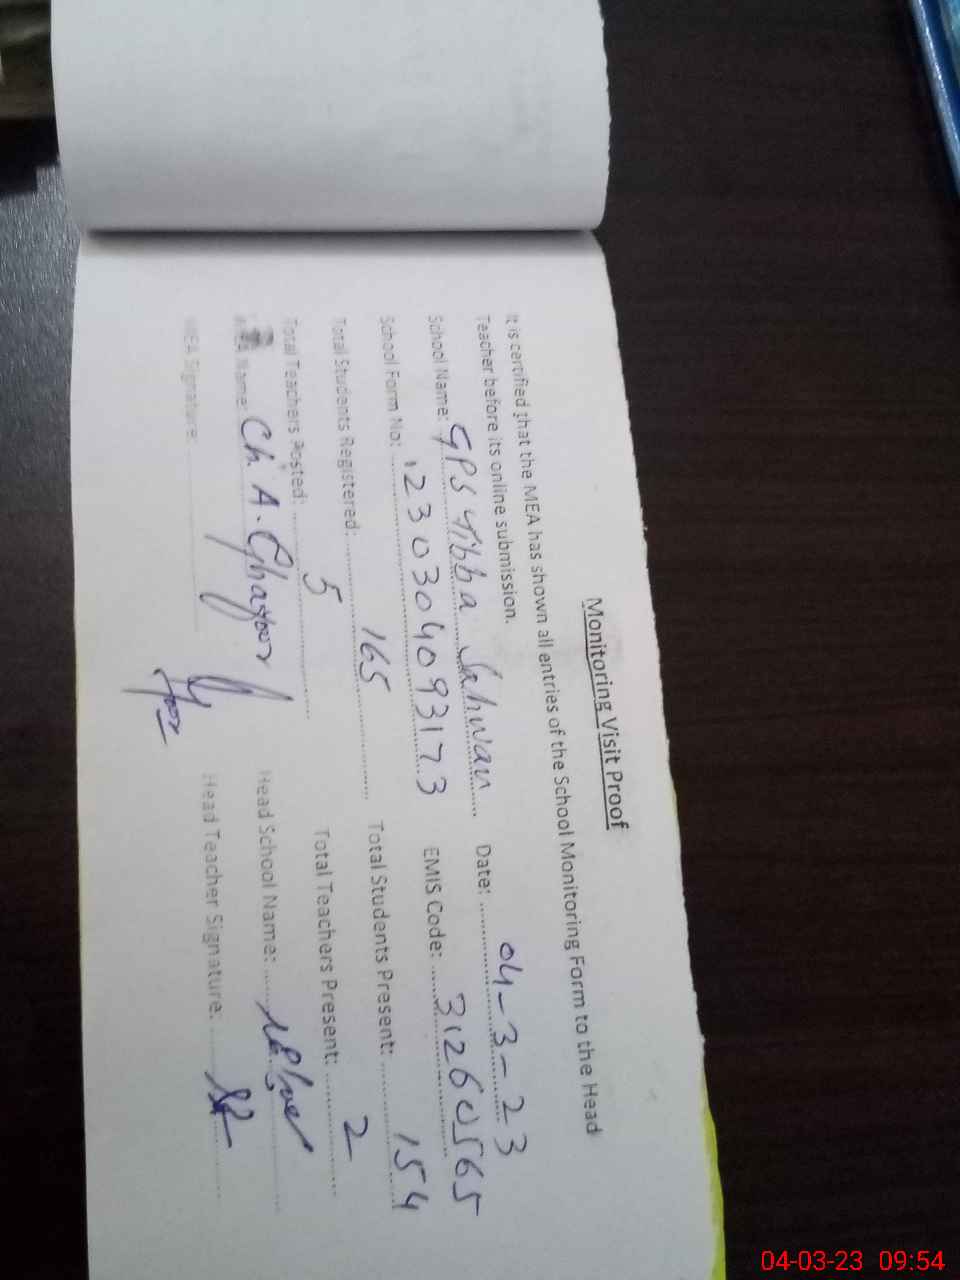 Monitoring Visit Proof
It is certified that the MEA has shown all entries of the School Monitoring Form to the Head
Teacher before its online submission.
School Name: GPS Tibba Sahwan Date: 04-3-23
School Form No: 230304093173 EMIS Code: 31260565
Total Students Registered: 165 Total Students Present: 154
Total Teachers Posted: 5 Total Teachers Present: 2
Name: Ch. A. Ghafoor Head School Name:
MEA Signature: Head Teacher Signature:
04-03-23 09:54